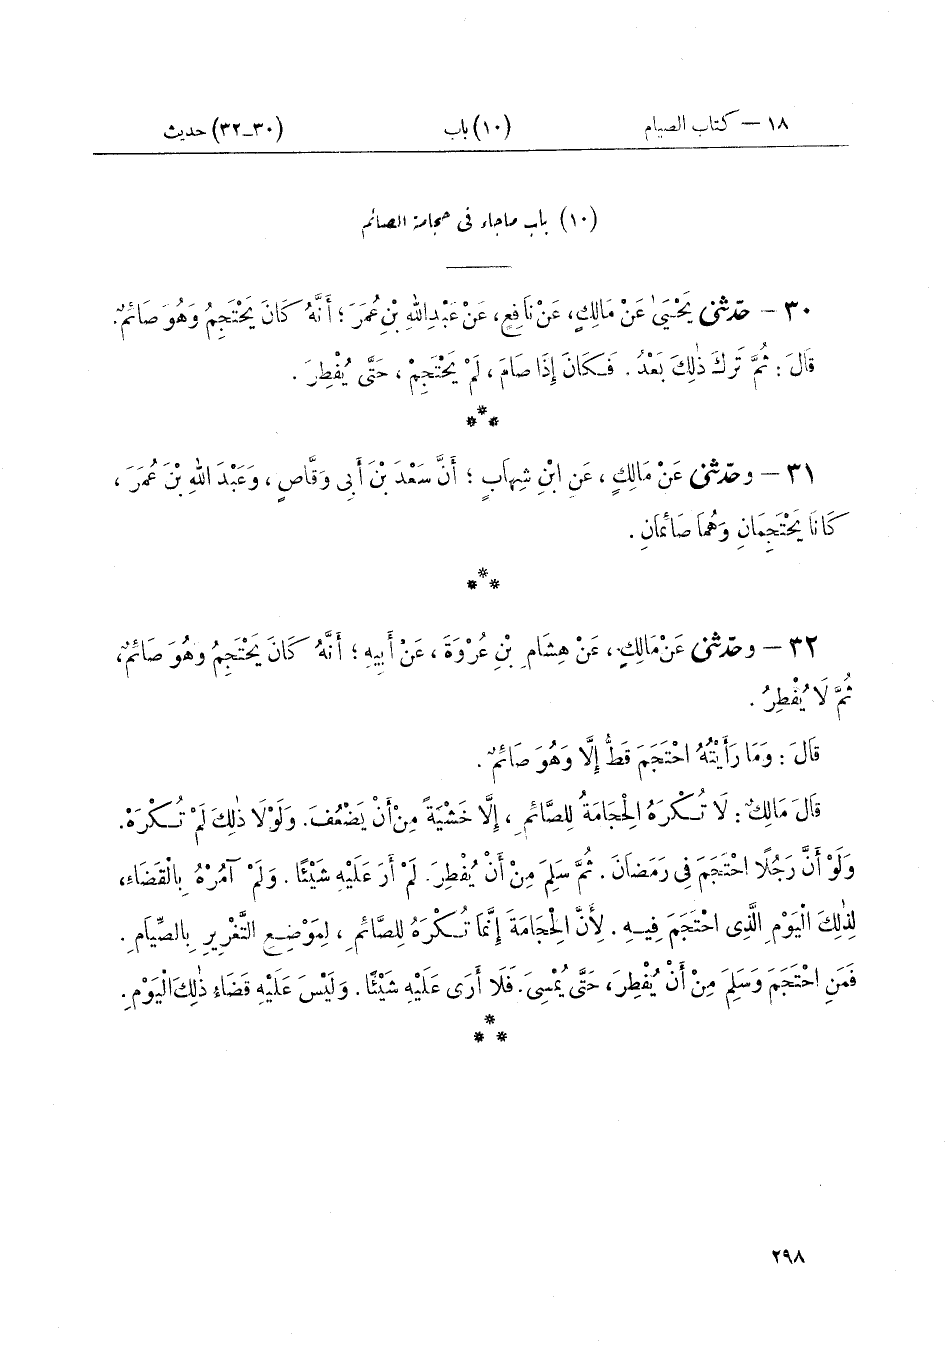 ١٨ – كتاب الصيام (١٠) باب (٣٠–٣٢) حديث
(١٠) باب ماجاء فى حجامة الصائم
٣٠ – حدّثنى يَحْيَىٰ عَنْ مَالِكٍ، عَنْ نَافِعٍ، عَنْ عَبْدِ اللهِ بْنِ عُمَرَ؛ أَنَّهُ كَانَ يَحْتَجِمُ وَهُوَ صَائِمٌ.
قَالَ: ثُمَّ تَرَكَ ذٰلِكَ بَعْدُ. فَكَانَ إِذَا صَامَ، لَمْ يَحْتَجِمْ، حَتَّى يُفْطِرَ.
***
٣١ – وحدّثنى عَنْ مَالِكٍ، عَنِ ابْنِ شِهَابٍ؛ أَنَّ سَعْدَ بْنَ أَبِى وَقَّاصٍ، وَعَبْدَ اللهِ بْنَ عُمَرَ،
كَانَا يَحْتَجِمَانِ وَهُمَا صَائِمَانِ.
***
٣٢ – وحدّثنى عَنْ مَالِكٍ، عَنْ هِشَامِ بْنِ عُرْوَةَ، عَنْ أَبِيهِ؛ أَنَّهُ كَانَ يَحْتَجِمُ وَهُوَ صَائِمٌ،
ثُمَّ لَا يُفْطِرُ.
قَالَ: وَمَا رَأَيْتُهُ احْتَجَمَ قَطُّ إِلَّا وَهُوَ صَائِمٌ.
قَالَ مَالِكٌ: لَا تُكْرَهُ الْحِجَامَةُ لِلصَّائِمِ، إِلَّا خَشْيَةً مِنْ أَنْ يَضْعُفَ. وَلَوْلَا ذٰلِكَ لَمْ تُكْرَهْ.
وَلَوْ أَنَّ رَجُلًا احْتَجَمَ فِى رَمَضَانَ. ثُمَّ سَلِمَ مِنْ أَنْ يُفْطِرَ. لَمْ أَرَ عَلَيْهِ شَيْئًا. وَلَمْ آمُرْهُ بِالْقَضَاءِ،
لِذٰلِكَ الْيَوْمِ الَّذِى احْتَجَمَ فِيهِ. لِأَنَّ الْحِجَامَةَ إِنَّمَا تُكْرَهُ لِلصَّائِمِ، لِمَوْضِعِ التَّغْرِيرِ بِالصِّيَامِ.
فَمَنِ احْتَجَمَ وَسَلِمَ مِنْ أَنْ يُفْطِرَ، حَتَّى يُمْسِىَ. فَلَا أَرَى عَلَيْهِ شَيْئًا. وَلَيْسَ عَلَيْهِ قَضَاءُ ذٰلِكَ الْيَوْمِ.
***
٢٩٨